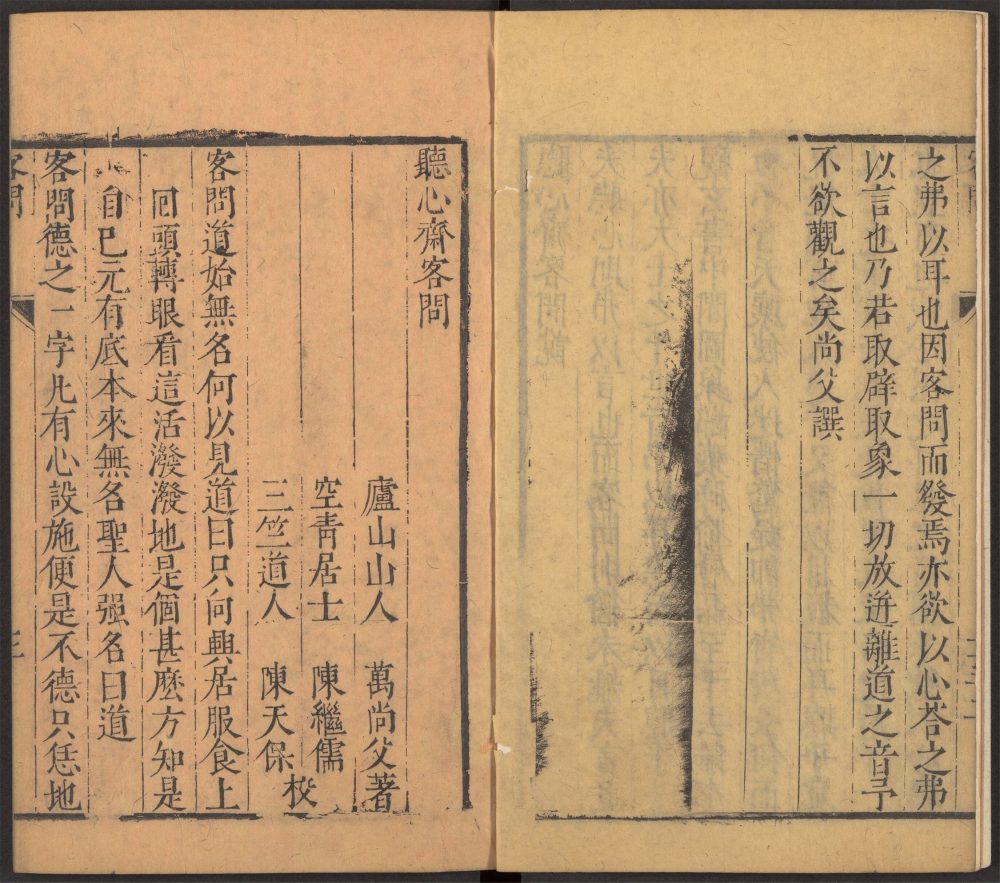 之弗以耳也因客問而發焉亦欲以心荅之弗
以言也乃若取辟取象一切放迸離道之音予
不欲觀之矣尚父譔
聽心齋客問
廬山山人 萬尚父著
空青居士 陳繼儒
三竺道人 陳天保
校
客問道始無名何以見道曰只向興居服食上
回頭轉眼看這活潑潑地是個甚麽方知是
自巳元有底本來無名聖人强名曰道
客問德之一字凣有心設施便是不德只恁地
客問
三